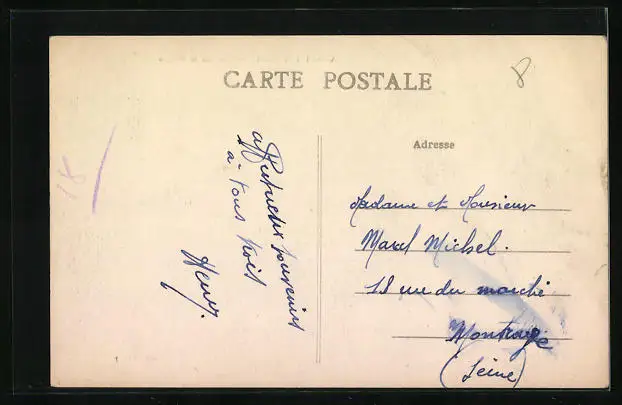 CARTE POSTALE
8
Adresse
18
affectueux souvenirs
à tous trois
Henry.
Madame et Monsieur
Marcel Michel.
11 rue du marché
Montrouge
(Seine)